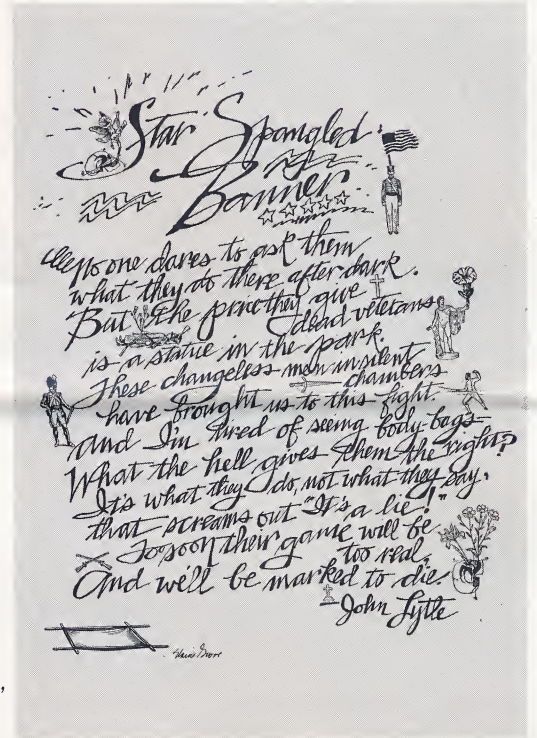 Star Spangled
Banner
No one dares to ask them
what they do there after dark.
But the price they give
dead veterans
is a statue in the park
These changeless men in silent
chambers
have brought us to this fight.
And I'm tired of seeing body bags
What the hell gives them the right?
It's what they do, not what they say.
that screams out "It's a lie!"
So soon their game will be
too real,
And we'll be marked to die
-John Lytle